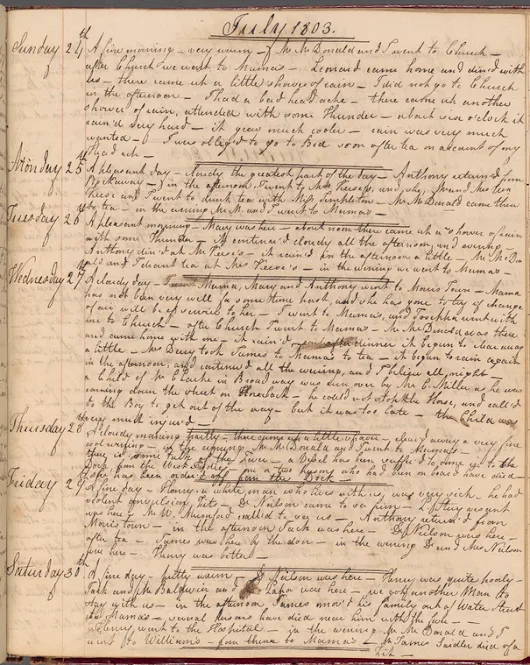 July 1803.
Sunday 24th A fine morning - very warm - Mr McDonald and I went to Church -
after Church we went to Mamas - Leonard came home and dined with
us - there came up a little shower of rain - I did not go to Church
in the afternoon - I had a bad headache - there came up another
shower of rain, attended with some Thunder - about six o'clock it
rain'd very hard - it grew much cooler - rain was very much
wanted - I was oblig'd to go to Bed soon after tea on account of my
head ach -
Monday 25th A pleasant day - cloudy the greatest part of the day - Anthony returned from
Rockaway - in the afternoon I went to Mrs and she and Mrs
and I went to drink tea with Miss Singleton - Mr McDonald came there
to tea - in the evening Mr M. and I went to Mamas -
Tuesday 26th A pleasant morning - Mary was here - about noon there came up a shower of rain
with some Thunder - it continu'd cloudy all the afternoon, and evening -
Anthony din'd at Mr - it rain'd in the afternoon a little - Mr McDo
and I drank tea at Mrs - in the evening we went to Mamas -
Wednesday 27th A cloudy day - Mama, Mary and Anthony went to Morris Town - Mama
has not been very well for some time past, and she has gone to try if change
of air will be of service to her - I went to Mamas, and went with
me to Church - after Church I went to Mamas - Mr McDonald was there
and came home with me - it rain'd after dinner it began to clear away
a little - Mrs Berry took James to Mamas to tea - it began to rain again
in the afternoon, and continued all the evening, and I believe all night -
a Child of Mr in Broad way was run over by Mr C Miller as he was
coming down the street on Horseback - he could not stop the Horse, and call'd
to the Boy to get out of the way - but it was too late - the Child was
very much injured -
Thursday 28th A cloudy morning partly - there sprung up a little , clear'd away a very fine
cool evening - in the evening Mr McDonald and I went to Mamas -
there is some talk of the Fever - a Vessel has been suffer'd to come up to the
Dock from the West Indies - on a two persons who had been on board have died
she has been order'd off from the Dock -
Friday 29th A fine day - Henry a white man who lives with us, was very sick - he had
violent convulsion fits - Dr Neilson came to see him - Mrs was
here - Mr W Mumford called to see us - Anthony return'd from
Morris town - in the afternoon Jack was here - Dr Neilson was here -
after tea - James was here by the door - in the evening Dr and Mrs Neilson
were here - Henry was better -
Saturday 30th A fine day - pretty warm - Dr Neilson was here - Henry was quite poorly -
Jack and Mr Baldwin and were here - we got another Man to
stay with us - in the afternoon James mov'd his family out of Water Street
to Mamas - several persons have died near him with the fever -
Henry went to the Hospital - in the evening Mr McDonald and I
went to Williams - from thence to Mamas - James died of a
fit -